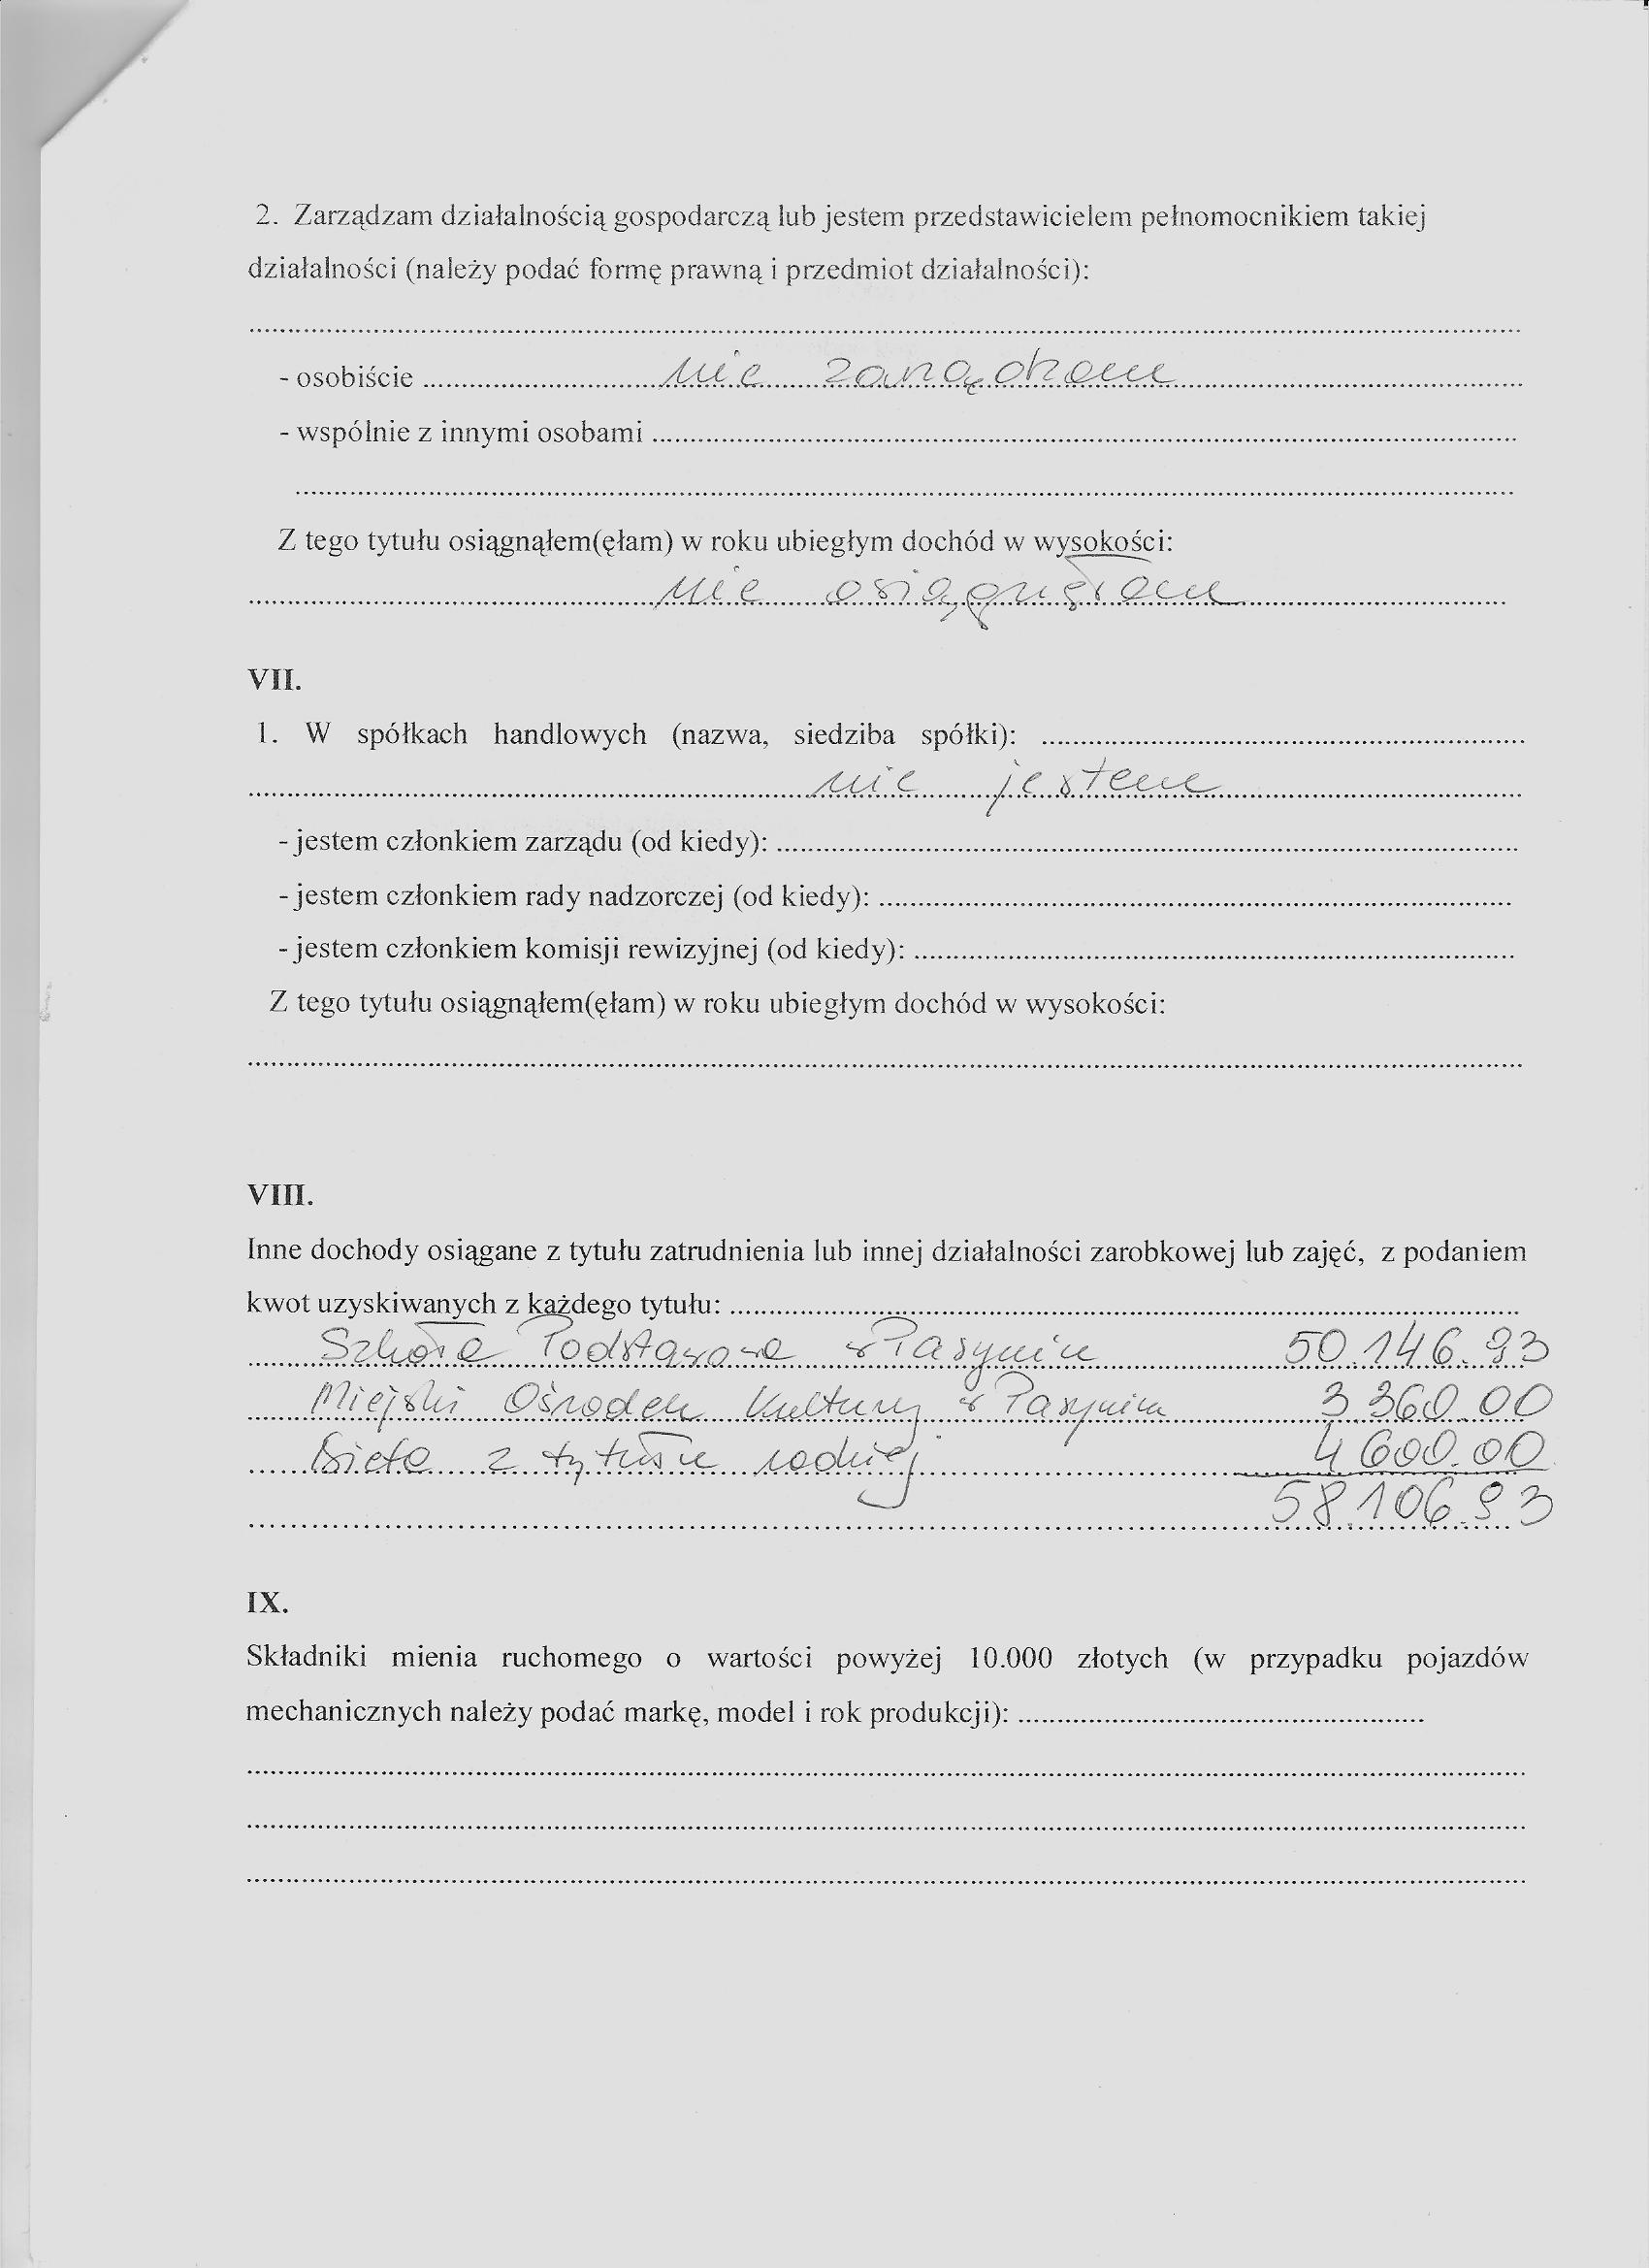 2. Zarządzam działalnością gospodarczą lub jestem przedstawicielem pełnomocnikiem takiej
działalności (należy podać formę prawną i przedmiot działalności):
- osobiście nie zarządzam
- wspólnie z innymi osobami
Z tego tytułu osiągnąłem(ęłam) w roku ubiegłym dochód w wysokości:
nie osiągnęłam
VII.
1. W spółkach handlowych (nazwa, siedziba spółki):
nie jestem
- jestem członkiem zarządu (od kiedy):
- jestem członkiem rady nadzorczej (od kiedy):
- jestem członkiem komisji rewizyjnej (od kiedy):
Z tego tytułu osiągnąłem(ęłam) w roku ubiegłym dochód w wysokości:
VIII.
Inne dochody osiągane z tytułu zatrudnienia lub innej działalności zarobkowej lub zajęć, z podaniem
kwot uzyskiwanych z każdego tytułu:
Szkoła Podstawowa w Pasymiu 50.146.93
Miejski Ośrodek Kultury w Pasymiu 3.360.00
Dieta z tytułu radnej 4 600.00
58.106.93
IX.
Składniki mienia ruchomego o wartości powyżej 10.000 złotych (w przypadku pojazdów
mechanicznych należy podać markę, model i rok produkcji):